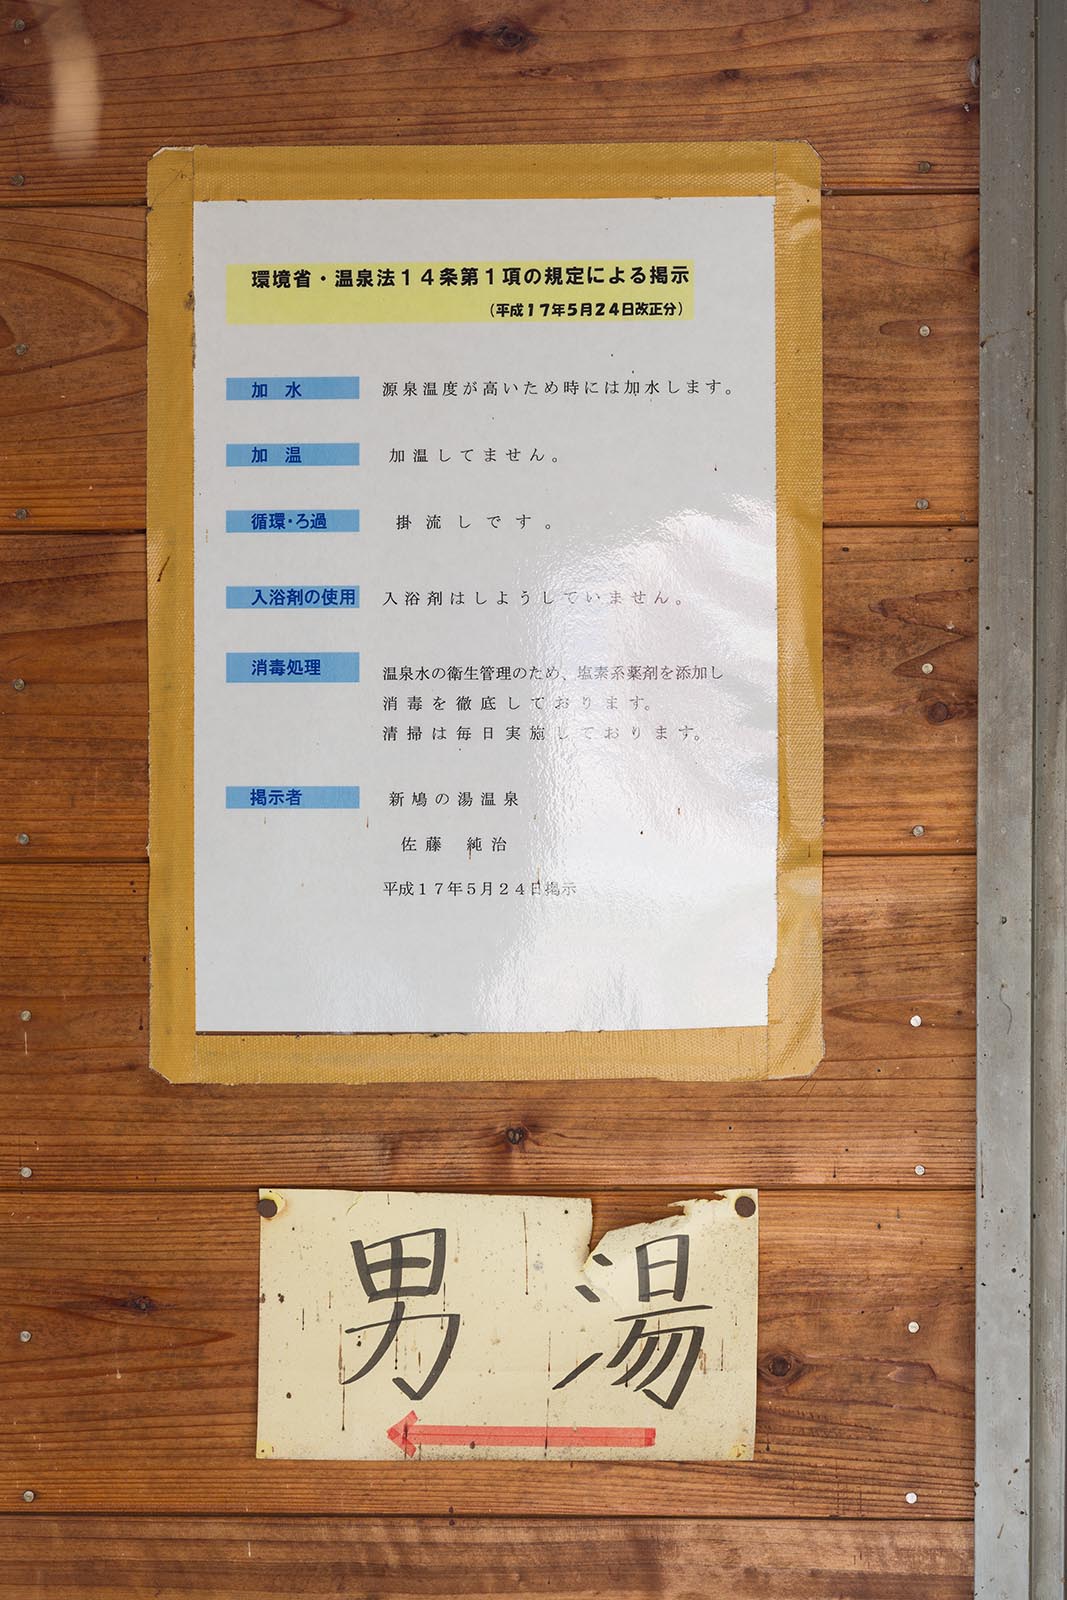 環境省・温泉法１４条第１項の規定による掲示
（平成１７年５月２４日改正分）
加　水　源泉温度が高いため時には加水します。
加　温　加温してません。
循環・ろ過　掛流しです。
入浴剤の使用　入浴剤はしようしていません。
消毒処理　温泉水の衛生管理のため、塩素系薬剤を添加し
消毒を徹底しております。
清掃は毎日実施しております。
掲示者　新鳩の湯温泉
佐藤　純治
平成１７年５月２４日掲示
男湯